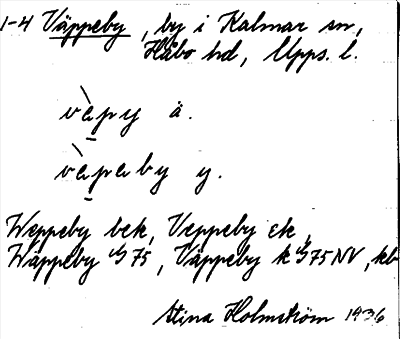 1-4 Väppeby, by i Kalmar sn,
Håbo hd, Upps. l.
vàpy ä.
vàpaby y.
Weppeby bek, Veppeby ek,
Wäppeby G 75, Väppeby k G 75 NV, kb
Stina Holmström 1936